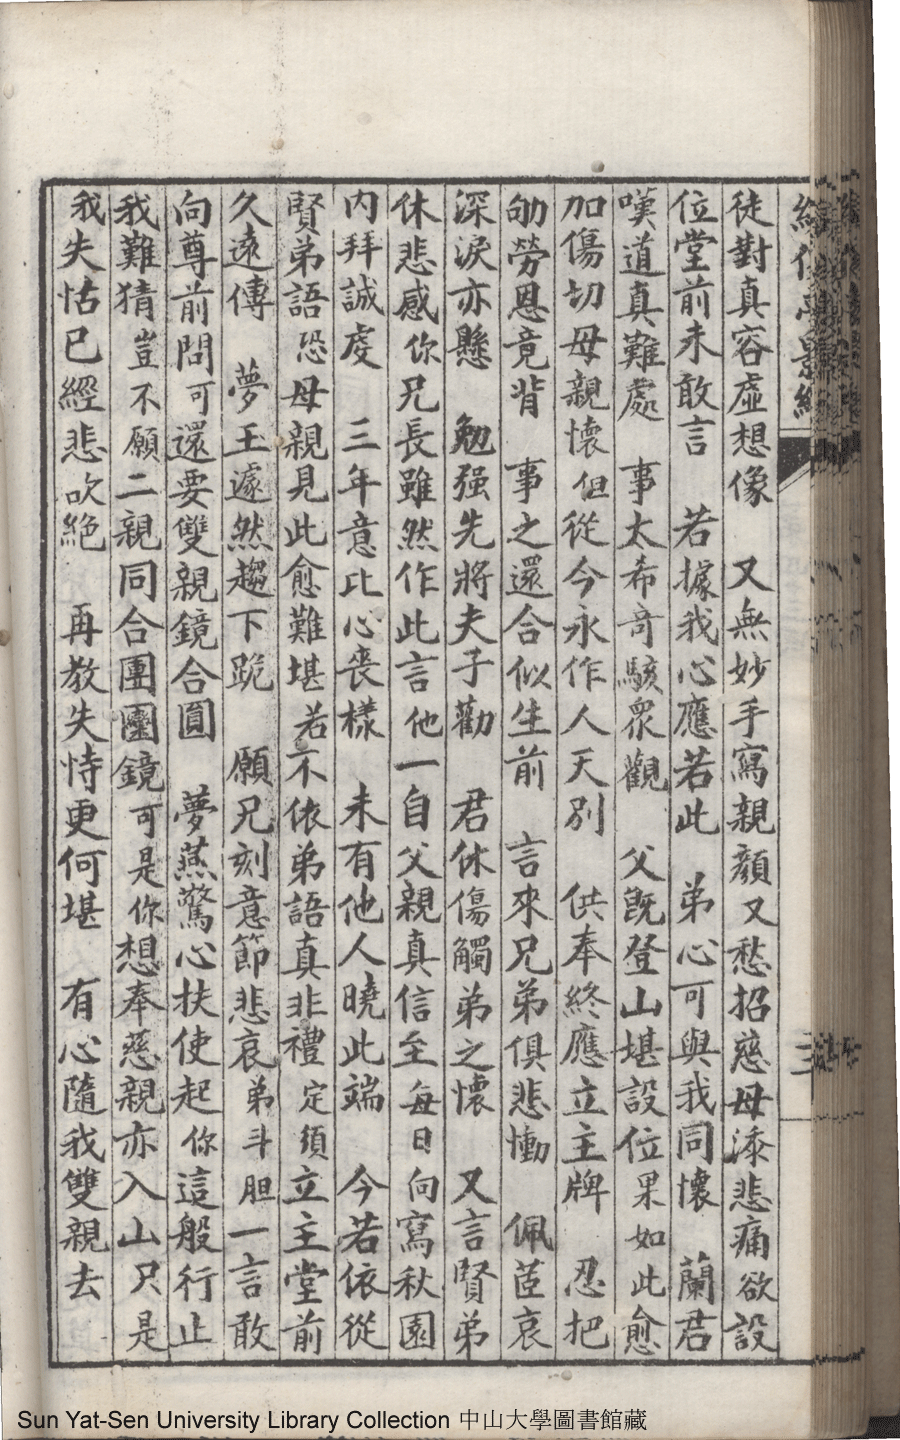 徒對真容虛想像　又無妙手寫親顏又愁招慈母添悲痛欲設
位堂前未敢言　若據我心應若此　弟心可與我同懷　蘭君
嘆道真難處　事太希奇駭眾觀　父既登山堪設位果如此愈
加傷切母親懷但從今永作人天別　供奉終應立主牌　忍把
劬勞恩竟背　事之還合似生前　言來兄弟俱悲慟　佩茝哀
深淚亦懸　勉强先將夫子勸　君休傷觸弟之懷　又言賢弟
休悲感你兄長雖然作此言他一自父親真信至每日向寫秋園
內拜誠虔　三年意比心喪樣　未有他人曉此端　今若依從
賢弟語恐母親見此愈難堪若不依弟語真非禮定須立主堂前
久遠傳　夢玉遽然趨下跪　願兄刻意節悲哀弟斗胆一言敢
向尊前問可還要雙親鏡合圓　夢燕驚心扶使起你這般行止
我難猜豈不願二親同合團圞鏡可是你想奉慈親亦入山只是
我失怙已經悲吹絕　再教失恃更何堪　有心隨我雙親去
Sun Yat-Sen University Library Collection 中山大學圖書館藏